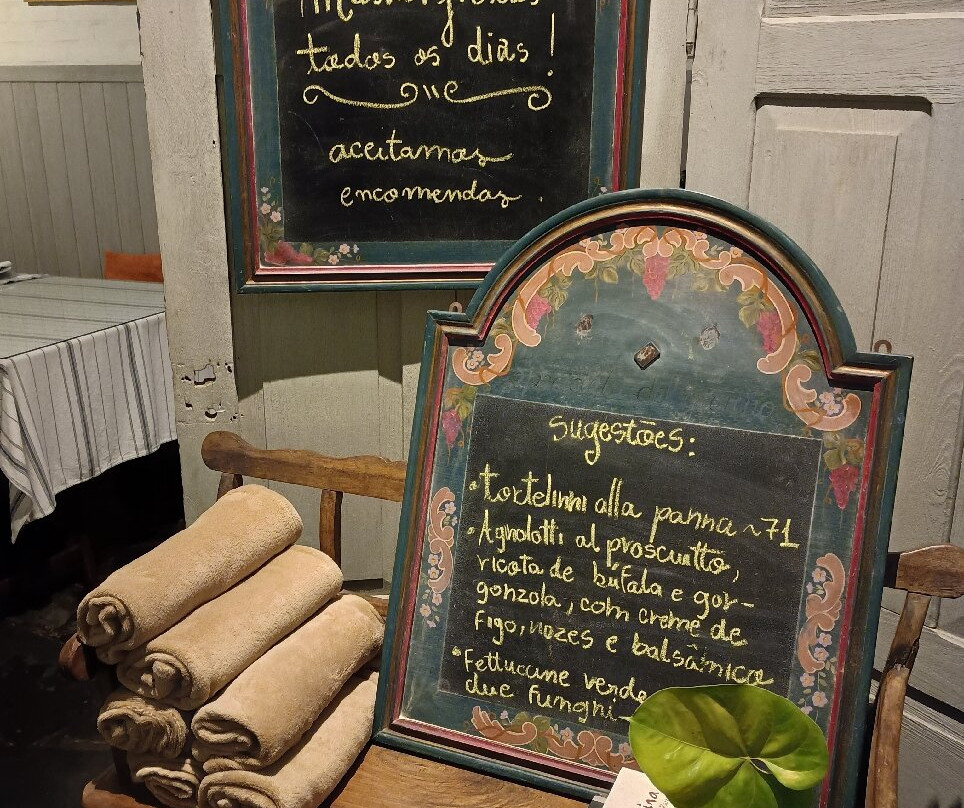 todos os dias!
aceitamos
encomendas.
Sugestões:
• tortelinni alla panna ~71
• Agnolotti al prosciutto,
ricota de búfala e gor-
gonzola, com creme de
figo, nozes e balsâmico
• Fettuccine verde
due funghi